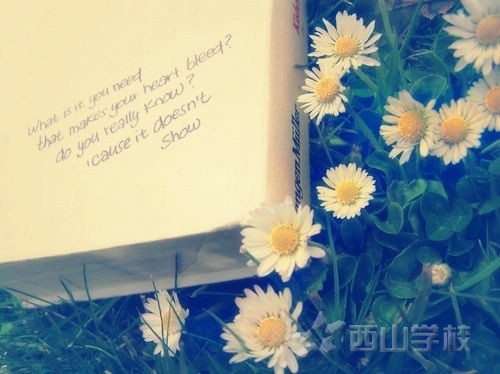 What is it you need
that makes your heart bleed?
do you really know?
'cause it doesn't
show
西山学校